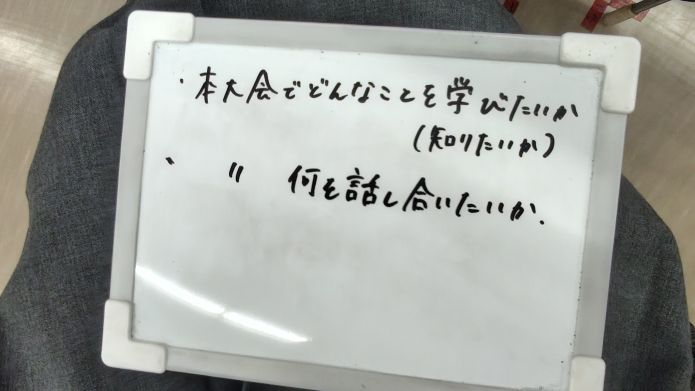 ・本大会でどんなことを学びたいか
(知りたいか)
・ 〃 何を話し合いたいか.